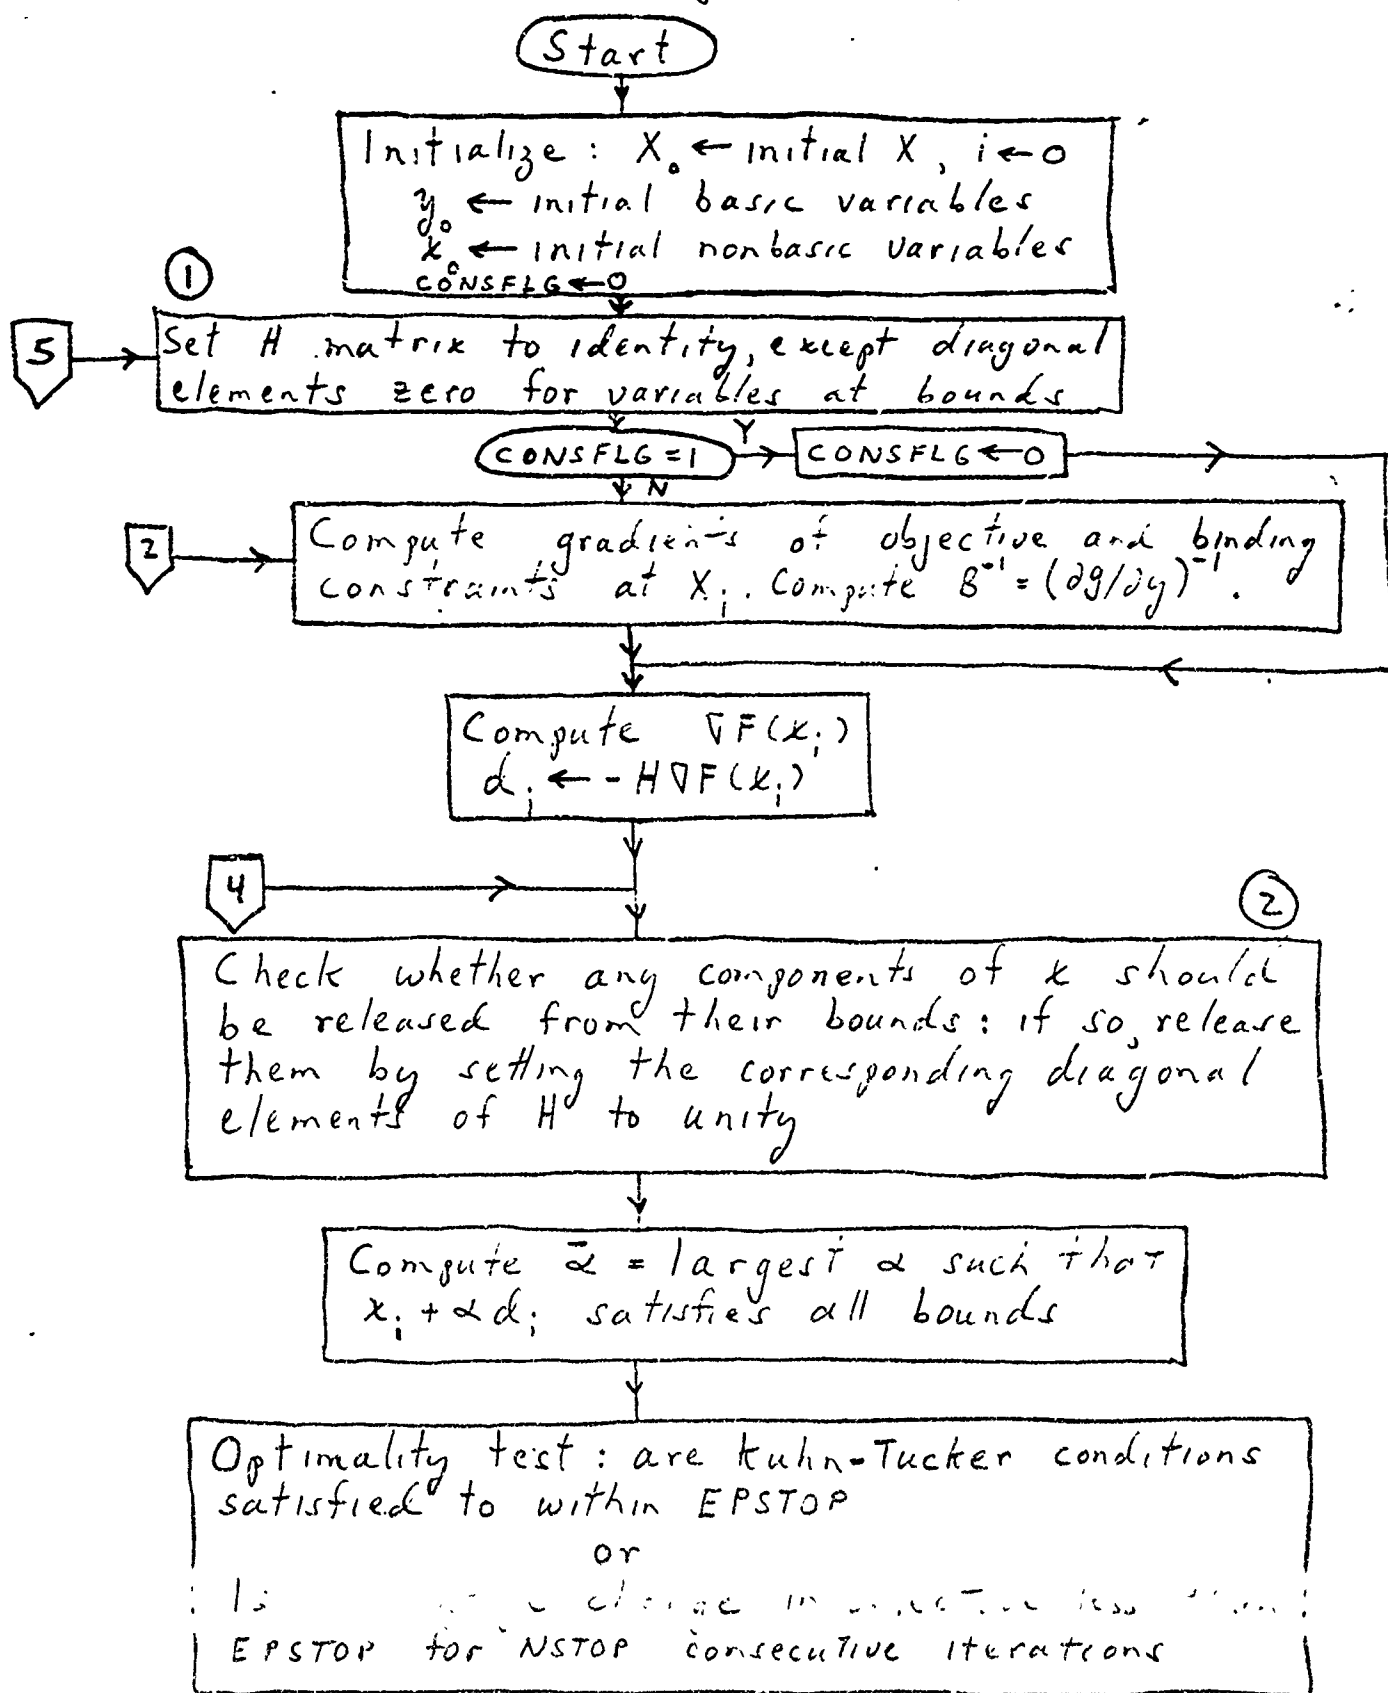 Start
Initialize : X₀ ← initial X, i ← 0
y₀ ← initial basic variables
x₀ ← initial nonbasic variables
CONSFLG ← 0
1
5
Set H matrix to identity, except diagonal
elements zero for variables at bounds
CONSFLG = 1
Y
CONSFLG ← 0
N
2
Compute gradients of objective and binding
constraints at Xᵢ. Compute B⁻¹ = (∂g/∂y)⁻¹.
Compute ∇F(xᵢ)
dᵢ ← - H∇F(xᵢ)
4
2
Check whether any components of x should
be released from their bounds : if so, release
them by setting the corresponding diagonal
elements of H to unity
Compute ᾱ = largest α such that
xᵢ + αdᵢ satisfies all bounds
Optimality test : are Kuhn-Tucker conditions
satisfied to within EPSTOP
or
Is change in less
EPSTOP for NSTOP consecutive iterations